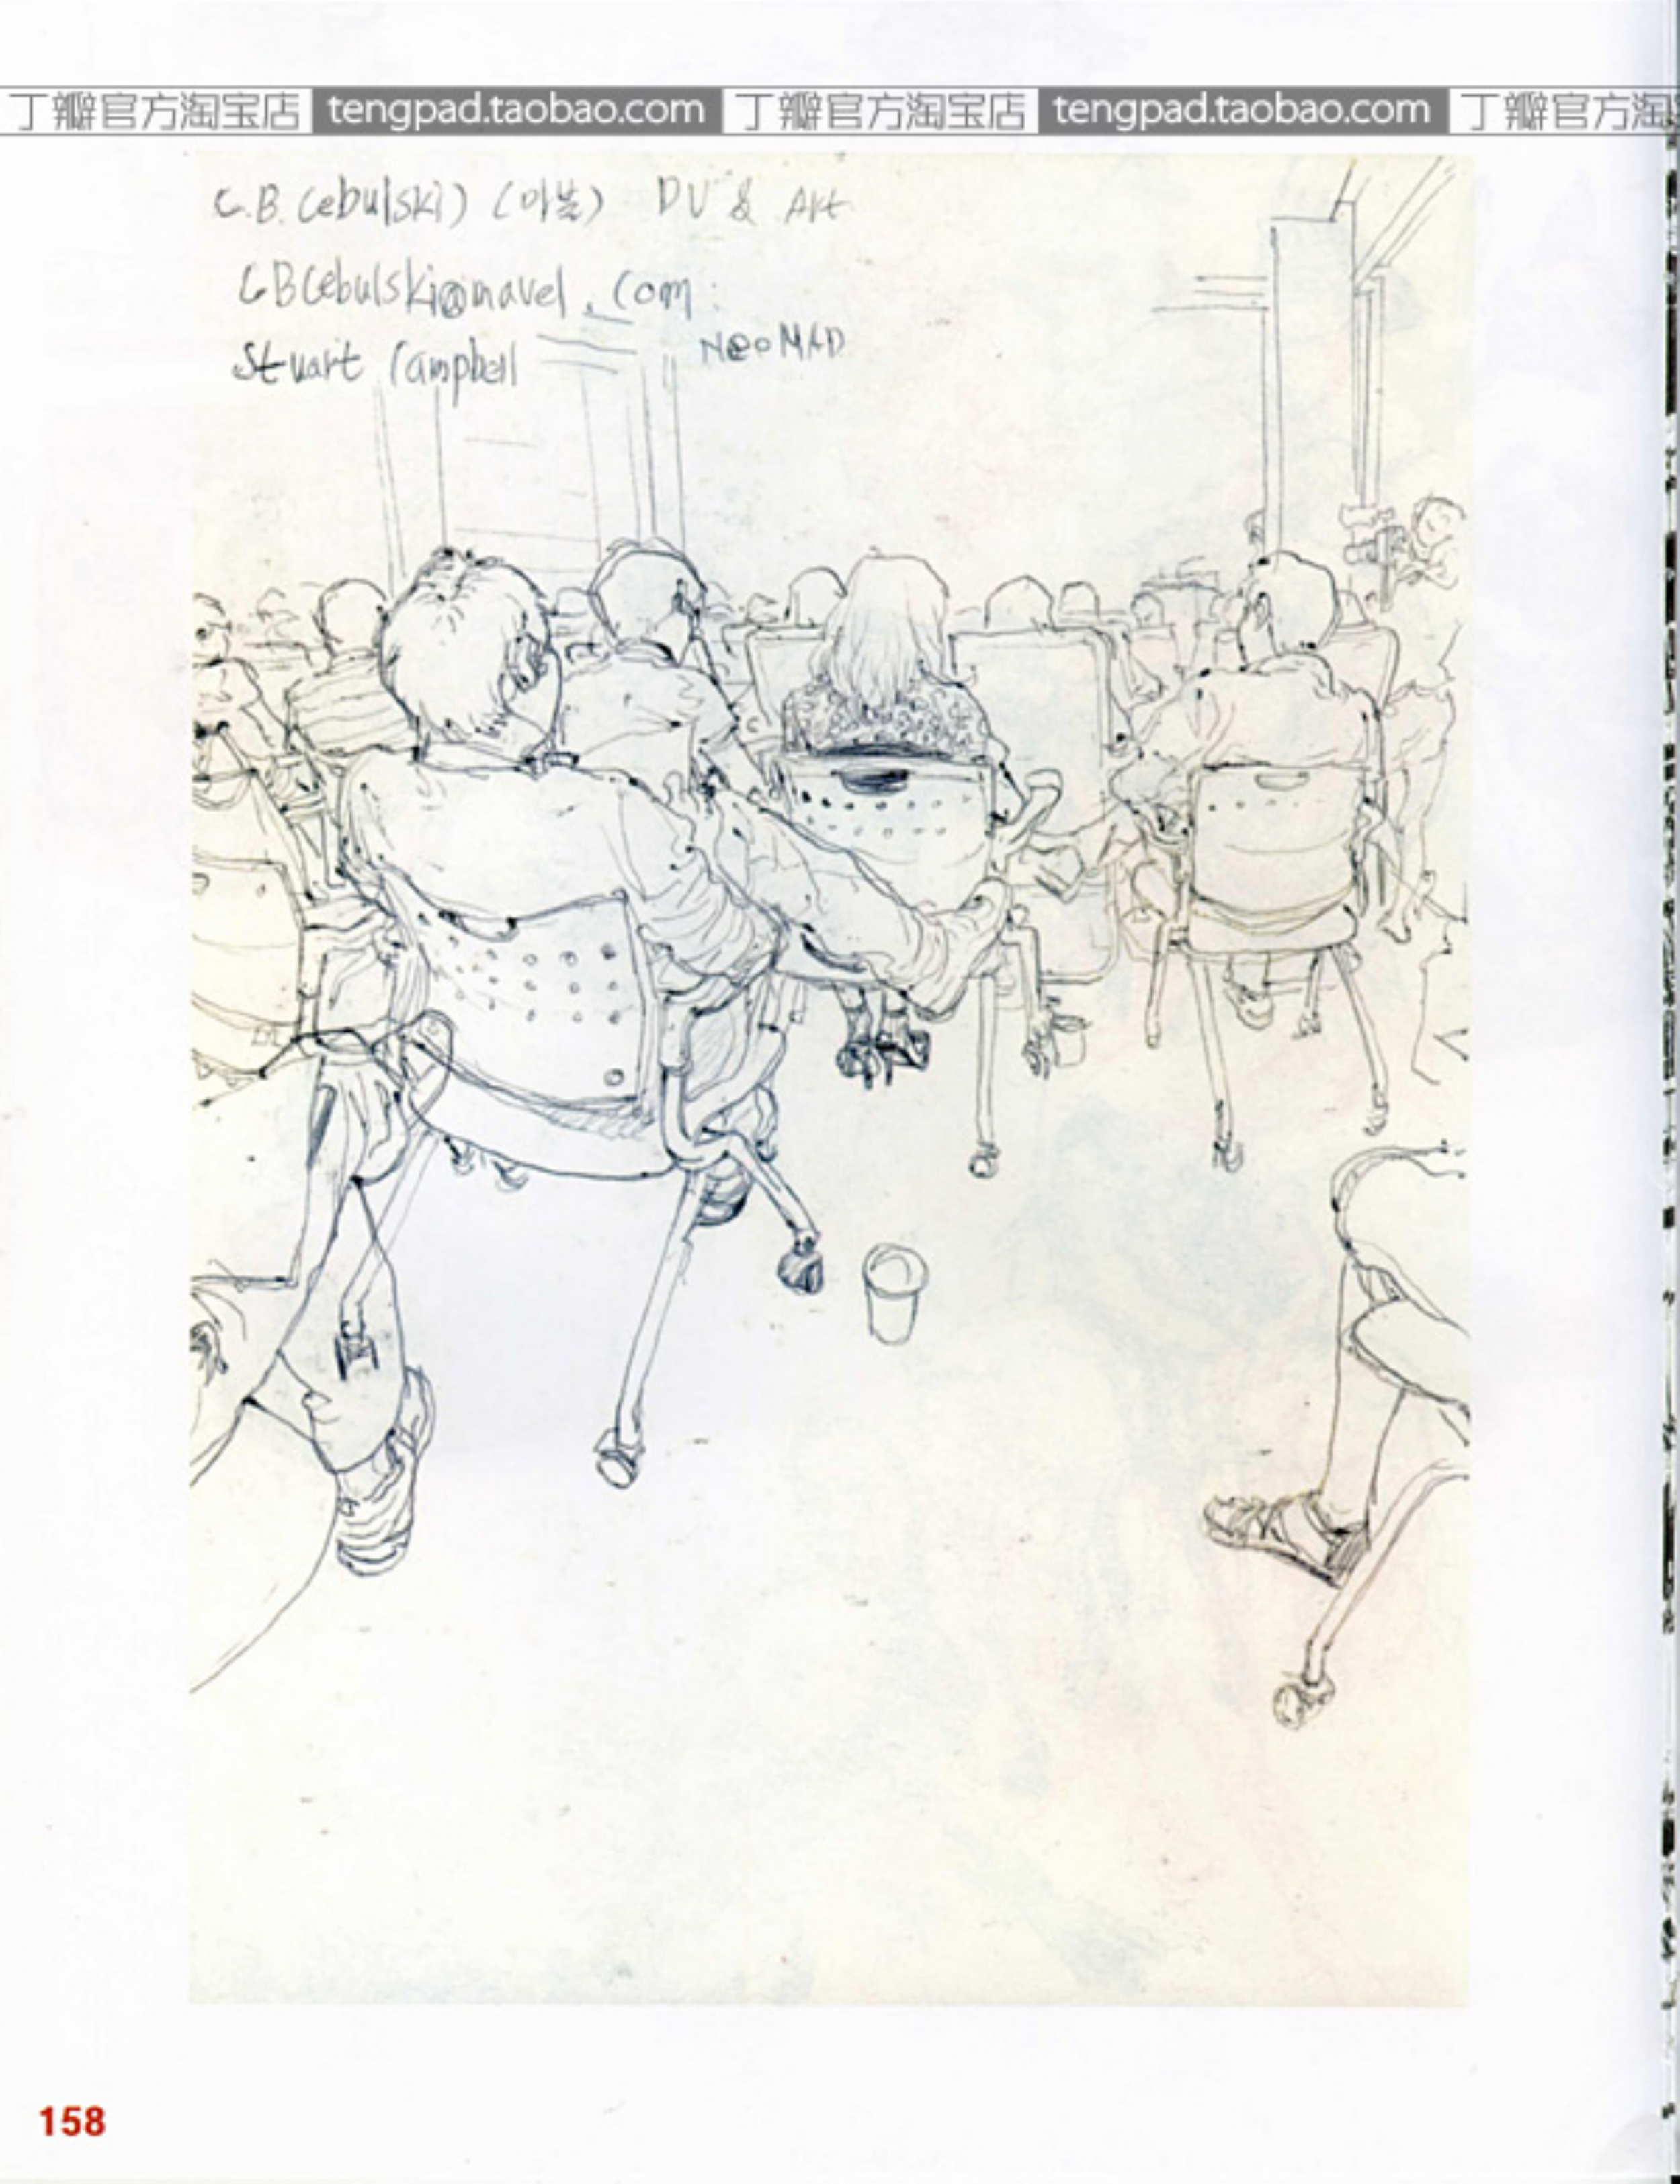 丁瓣官方淘宝店 tengpad.taobao.com 丁瓣官方淘宝店 tengpad.taobao.com 丁瓣官方淘
C.B. Cebulski) (마블) DV & Art
CBCebulski@mavel.com
Stuart Campbell NEOMAD
158